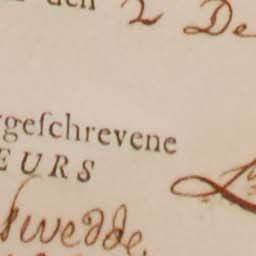 den 2 De
rgeſchrevene
EURS
wedde.